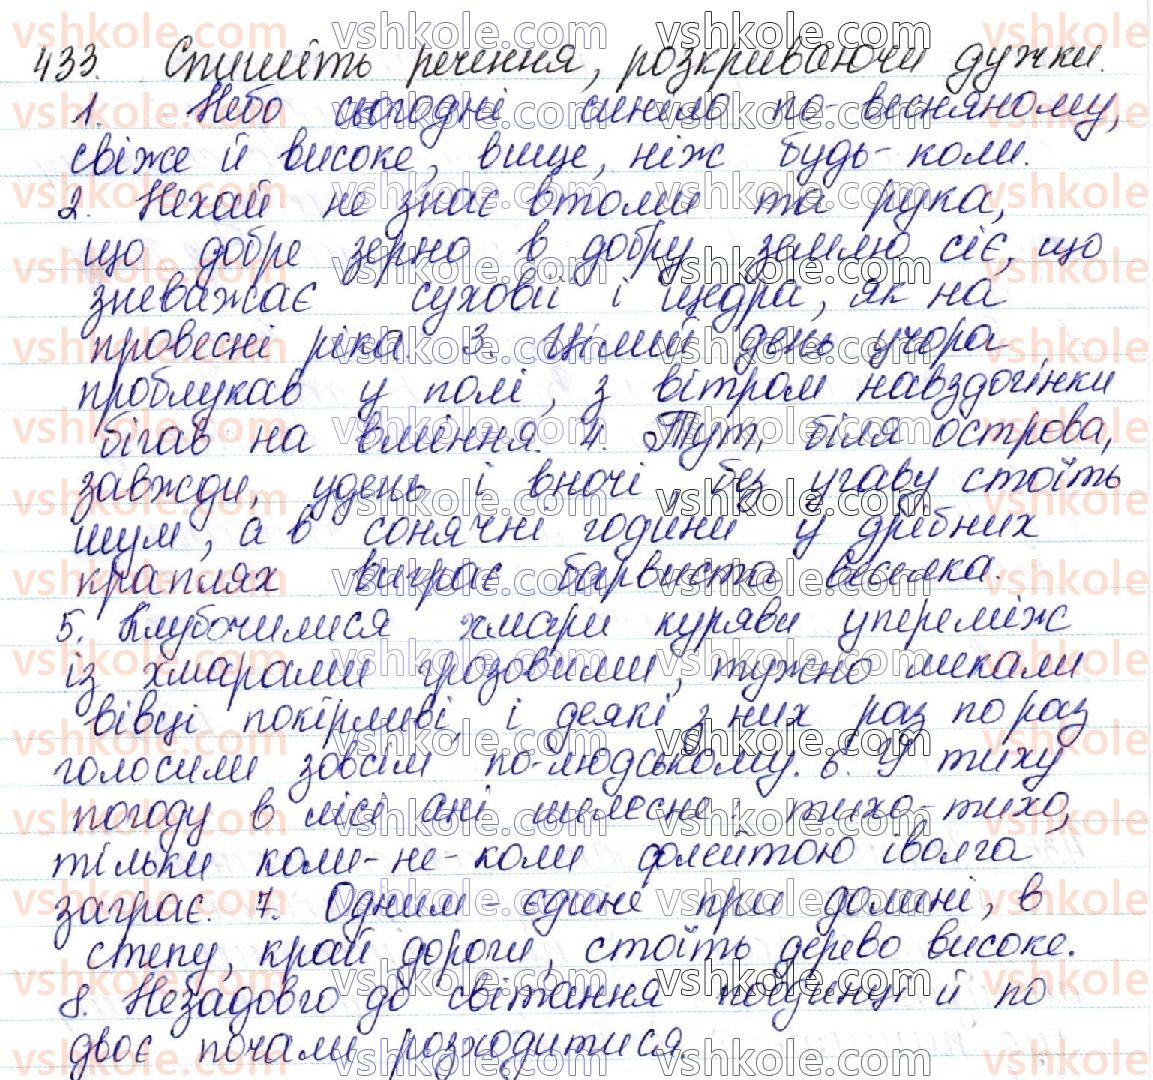 433. Спишіть речення, розкриваючи дужки.
1. Небо сьогодні синіло по-весняному,
свіже й високе, вище, ніж будь-коли.
2. Нехай не знає втоми та рука,
що добре зерно в добру землю сіє, що
зневажає суховії і щедра, як на
провесні ріка. 3. Цілий день учора
проблукав у полі, з вітром навздогінки
бігав на вміння. 4. Тут, біля острова,
завжди, удень і вночі, без угаву стоїть
шум, а в сонячні години у дрібних
краплях виграє барвиста веселка.
5. Клубочилися хмари куряви упереміж
із хмарами грозовими, тужно мекали
вівці покірливі, і деякі з них раз по раз
голосили зовсім по-людському. 6. У тиху
погоду в лісі ані шелесне: тихо-тихо,
тільки коли-не-коли флейтою іволга
заграє. 7. Одним-єдине при долині, в
степу, край дороги, стоїть дерево високе.
8. Незадовго до світання поодинці й по
двоє почали розходитися.
vshkole.com